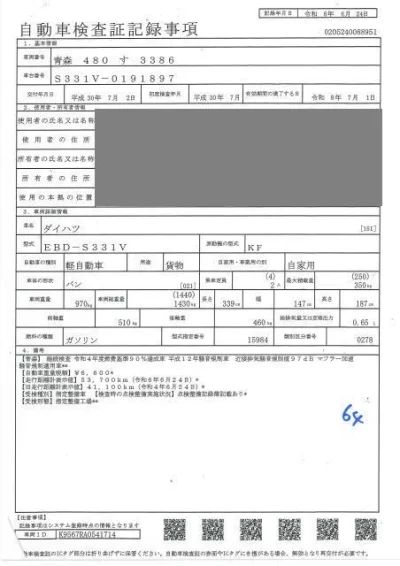 記録年月日 令和 6年 6月 24日
自動車検査証記録事項
0205240088951
1. 基本情報
車両番号 青森 480 す 3386
車台番号 S331V-0191897
交付年月日 平成 30年 7月 2日 初度検査年月 平成 30年 7月 有効期間の満了する日 令和 8年 7月 1日
2. 使用者・所有者情報
使用者の氏名又は名称
使用者の住所
所有者の氏名又は名称
所有者の住所
使用の本拠の位置
3. 車両詳細情報
車名 ダイハツ [151]
型式 EBD-S331V 原動機の型式 KF
自動車の種別 軽自動車 用途 貨物 自家用・事業用の別 自家用
車体の形状 バン [021] 乗車定員 (4) 2人 最大積載量 (250) 350kg
車両重量 970kg 車両総重量 (1440) 1430kg 長さ 339cm 幅 147cm 高さ 187cm
前軸重 510kg 後軸重 460kg 総排気量又は定格出力 0.65 L
燃料の種類 ガソリン 型式指定番号 15984 類別区分番号 0278
4. 備考
【青森】 継続検査 令和4年度燃費基準90%達成車 平成12年騒音規制車 近接排気騒音規制値97dB マフラー加速
騒音規制適用車**
【自動車重量税額】¥6,600*
【走行距離計表示値】53,700km (令和6年6月24日)*
【旧走行距離計表示値】41,100km (令和4年6月24日)*
【受検種別】指定整備車 【検査時の点検整備実施状況】点検整備記録簿記載あり*
【受検形態】指定整備工場**
64
【注意事項】
記録事項はシステム登録時点の情報となります
車両ID K9567RA0541714
自動車検査証のICタグ部分は折り曲げずに保管ください。